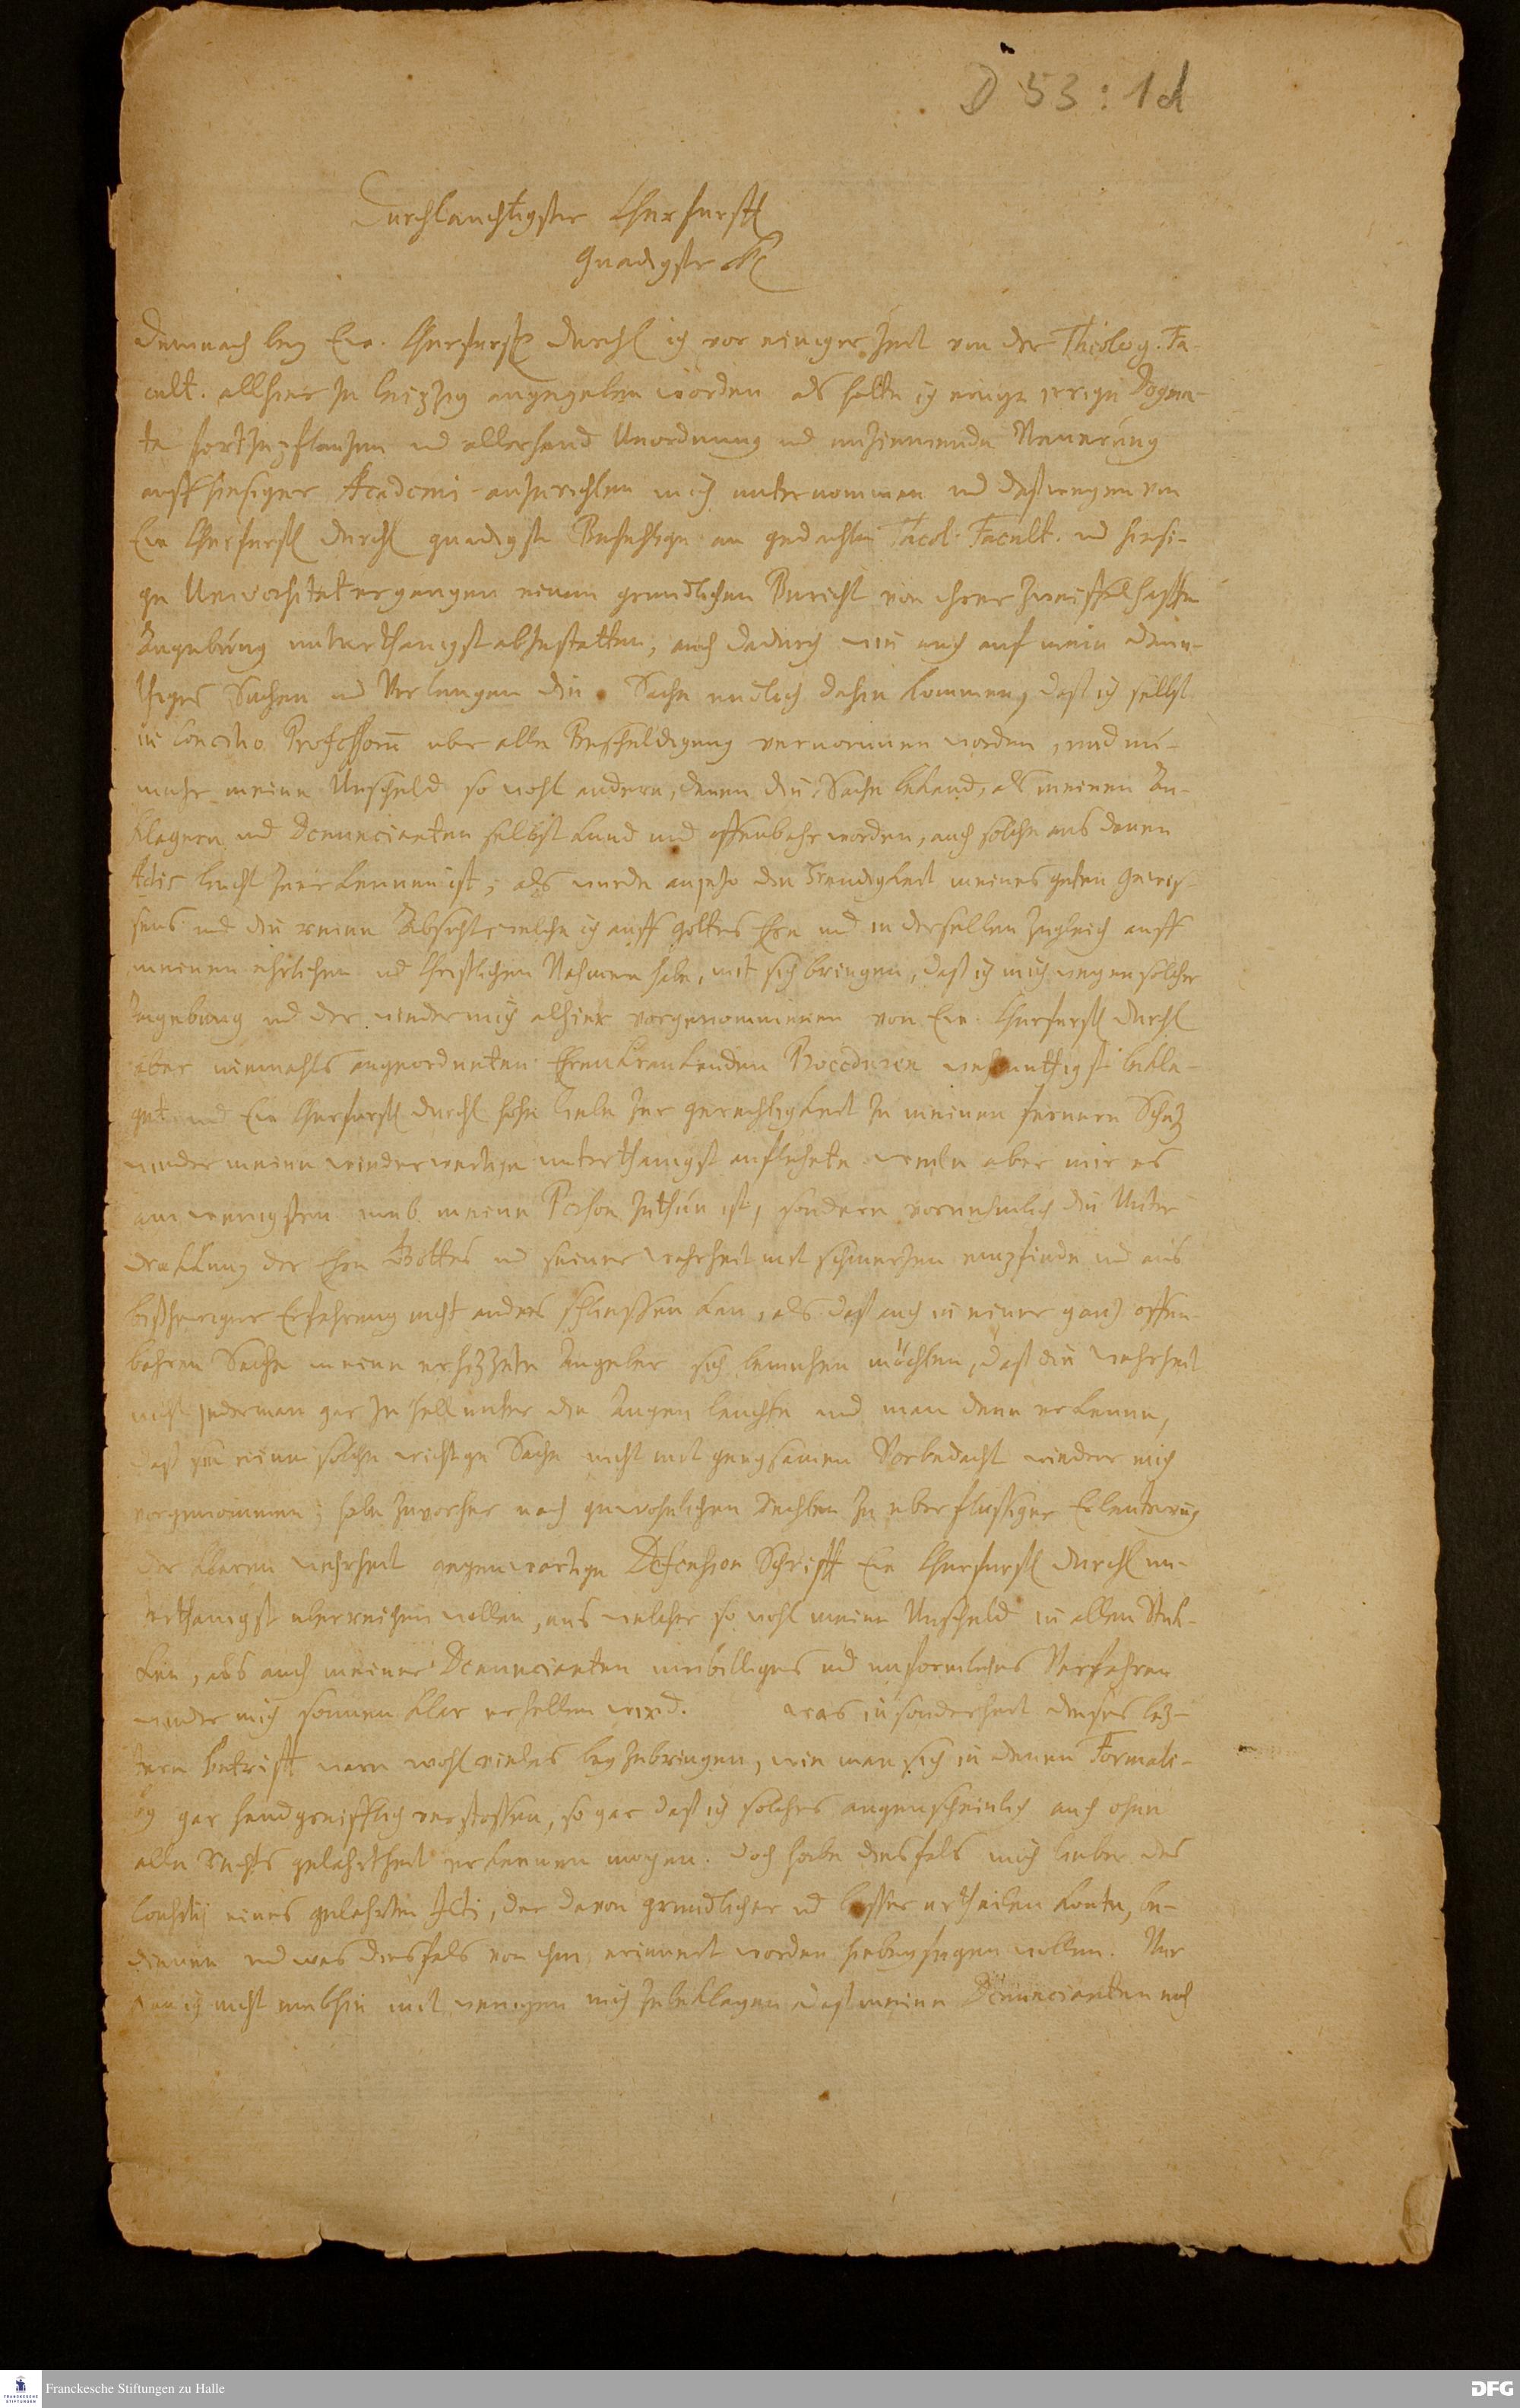 D 53 : 1d
Durchlauchtigster Churfurstl
Gnadigster
Demnach bey Ew. Churfurstl Durchl ich vor einiger Zeit von der Theolog. Fa-
cult. allhier zu Leipzig angegeben worden als hatte ich einige irrige Dogma-
ta fortzupflantzen ud allerhand Unordnung ud unziemende Neuerung
auff hiesiger Academi anzurichten mich unternommen ud deßwegen von
Ew Churfurstl Durchl gnadigste Befehlige an gedachte Theol. Facult. ud hiesi-
ge Universitat ergangen einen grundlichen Bericht von ihrer zweiffelhafften
Angebung unterthanigst abzustatten, auch dadurch wie auch auf mein demu-
thiges Suchen ud Verlangen die Sache endlich dahin kommen, daß ich selbst
in Concilio Professorū uber alle Beschuldigung vernommen worden, und nu-
mehr meine Unschuld so wohl andern, denen die Sache bekand, als meinen An-
klagern ud Denuncianten selbst kund und offenbahr worden, auch solche aus denen
Actis leicht zu erkennen ist; als wurde anjetzo die Freudigkeit meines guten Gewis-
sens ud die reine Absicht welche ich auff Gottes Ehre ud in derselben zugleich auff
meinen ehrlichen ud Christlichen Nahmen habe, mit sich bringen, daß ich mich wegen solcher
Angebung ud der wieder mich alhier vorgenommenen von Ew. Churfurstl Durchl
aber niemahls angeordneten Ehrenkranckenden Proceduren wehmuthigst bekla-
gete und Ew Churfurstl Durchl hohe Liebe zur Gerechtigkeit zu meinen fernern Schutz
wieder meine wiederwertige unterthanigst anflehete weiln aber mir es
am wenigsten umb meine Person zuthun ist, sondern vornehmlich die Unter
druckung der Ehre Gottes ud seiner Wahrheit mit schmerzen empfinde ud aus
bißheriger Erfahrung nicht anders schliessen kan, als daß auch in einer gantz offen-
bahren Sache meine erhitzete Angeber sich bemuhen möchten, daß die Wahrheit
nicht jederman gar zu hell unter die Augen leuchte und man denn erkenne,
daß sie eine solche wichtige Sache nicht mit gnugsamen Vorbedacht wieder mich
vorgenommen; habe zuvorher nach gewohnlichen Rechten zu uberflussiger Erleuterung
der klaren Wahrheit gegenwartige Defension Schrifft Ew Churfurstl Durchl un-
terthanigst uberreichen wollen, aus welcher so wohl meine Unschuld in allen Stuk-
ken, als auch meiner Denuncianten unbilliges ud unformliches Verfahren
wieder mich sonnen klar erhellen wird. was in sonderheit dieses letz-
tern betrifft ware wohl vieles beyzubringen, wie man sich in denen Formali-
by gar handgreifflich verstossen, so gar daß ich solches augenscheinlich auch ohne
alle Rechts gelahrtheit erkennen mogen. doch habe diesfals mich lieber des
Consilij eines gelahrten Icti, der davon grundlicher ud besser urtheilen konte, be-
dienen ud was diesfals von ihm erinnert worden hiebey fugen wollen. Nur
kan ich nicht umbhin mit wenigen mich zubeklagen daß meine Denuncianten noch
Franckesche Stiftungen zu Halle
FRANCKESCHE
STIFTUNGEN
DFG